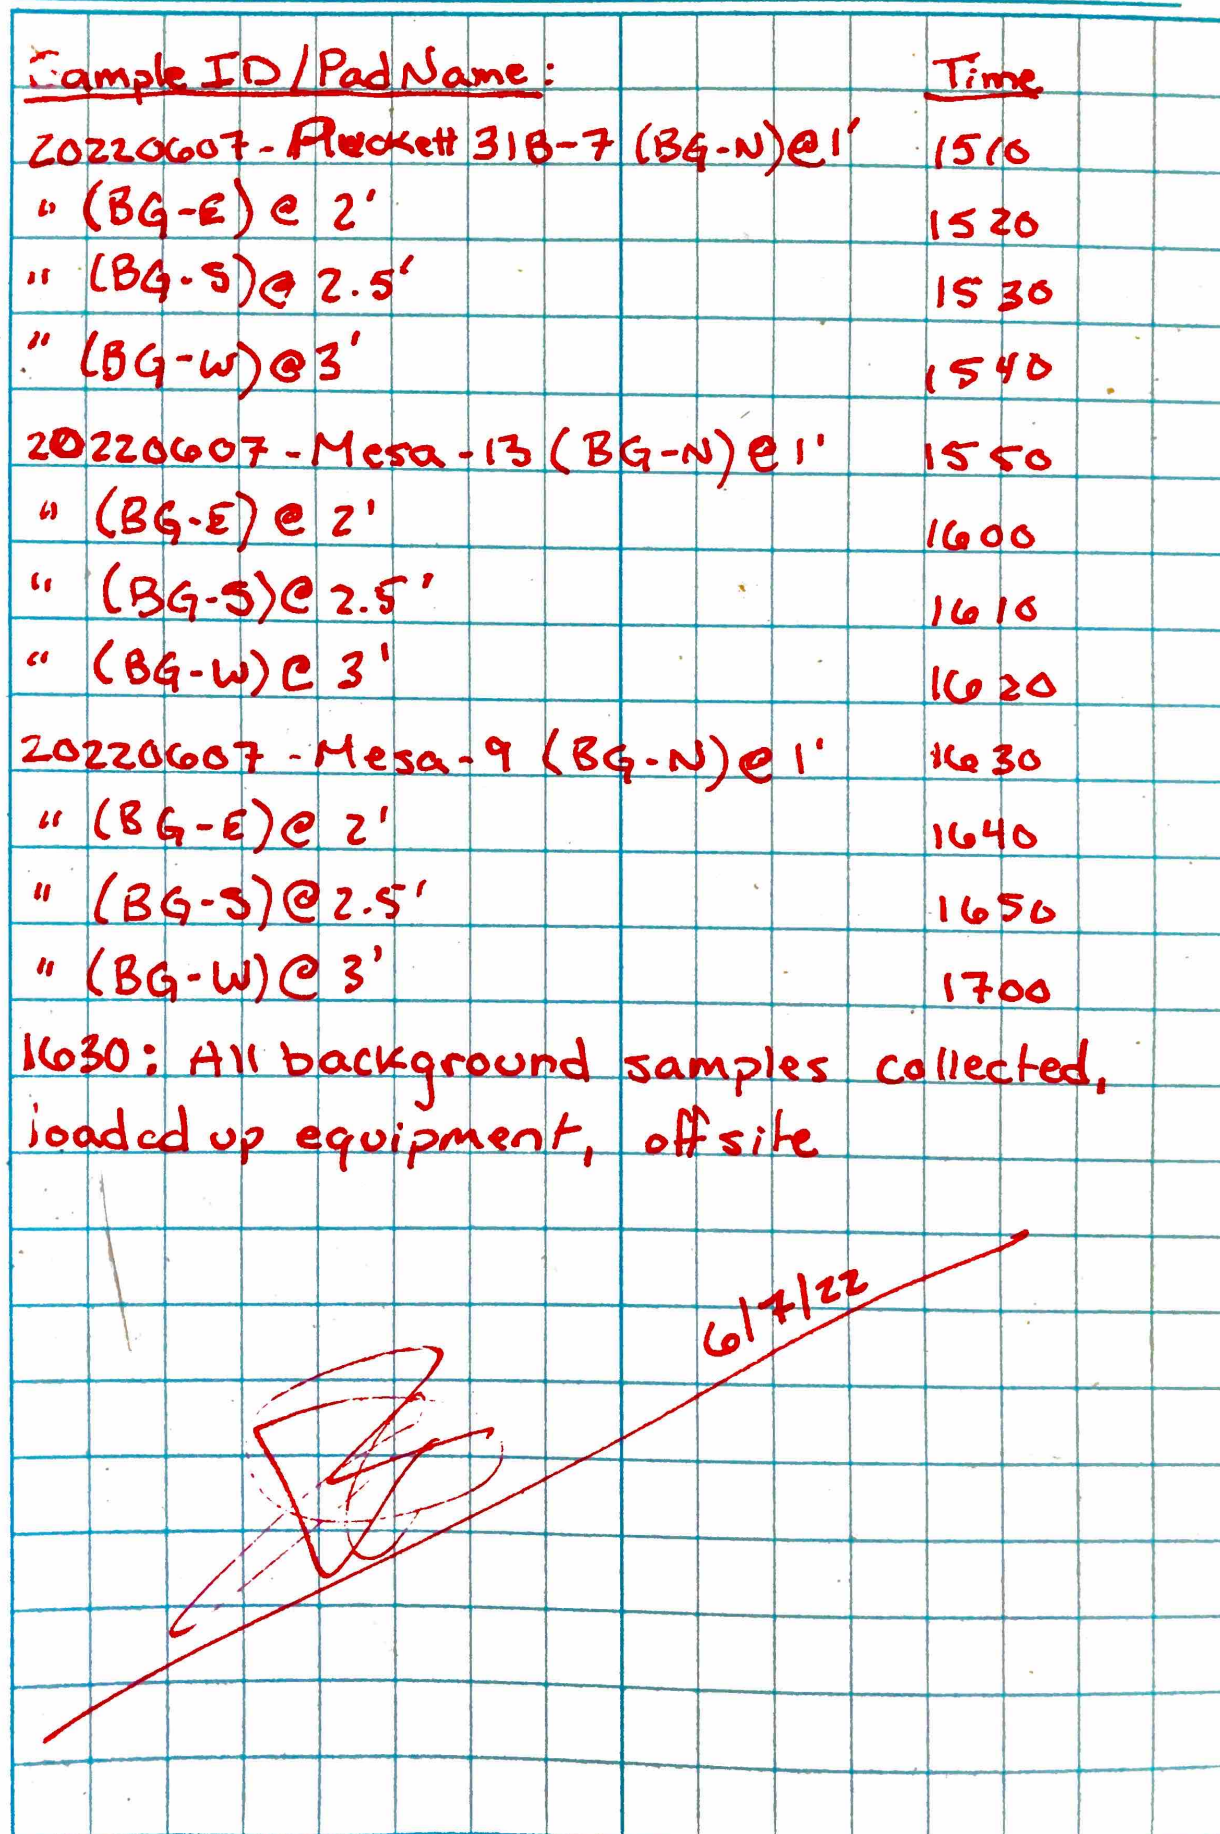 Sample ID/Pad Name: Time
20220607-Puckett 31B-7 (BG-N)@1' 1510
" (BG-E) @ 2' 1520
" (BG-S)@ 2.5' 1530
" (BG-W)@3' 1540
20220607-Mesa-13 (BG-N)@1' 1550
" (BG-E) @ 2' 1600
" (BG-S)@ 2.5' 1610
" (BG-W)@ 3' 1620
20220607-Mesa-9 (BG-N)@1' 1630
" (BG-E)@ 2' 1640
" (BG-S)@2.5' 1650
" (BG-W)@ 3' 1700
1630: All background samples collected,
loaded up equipment, offsite
6/7/22